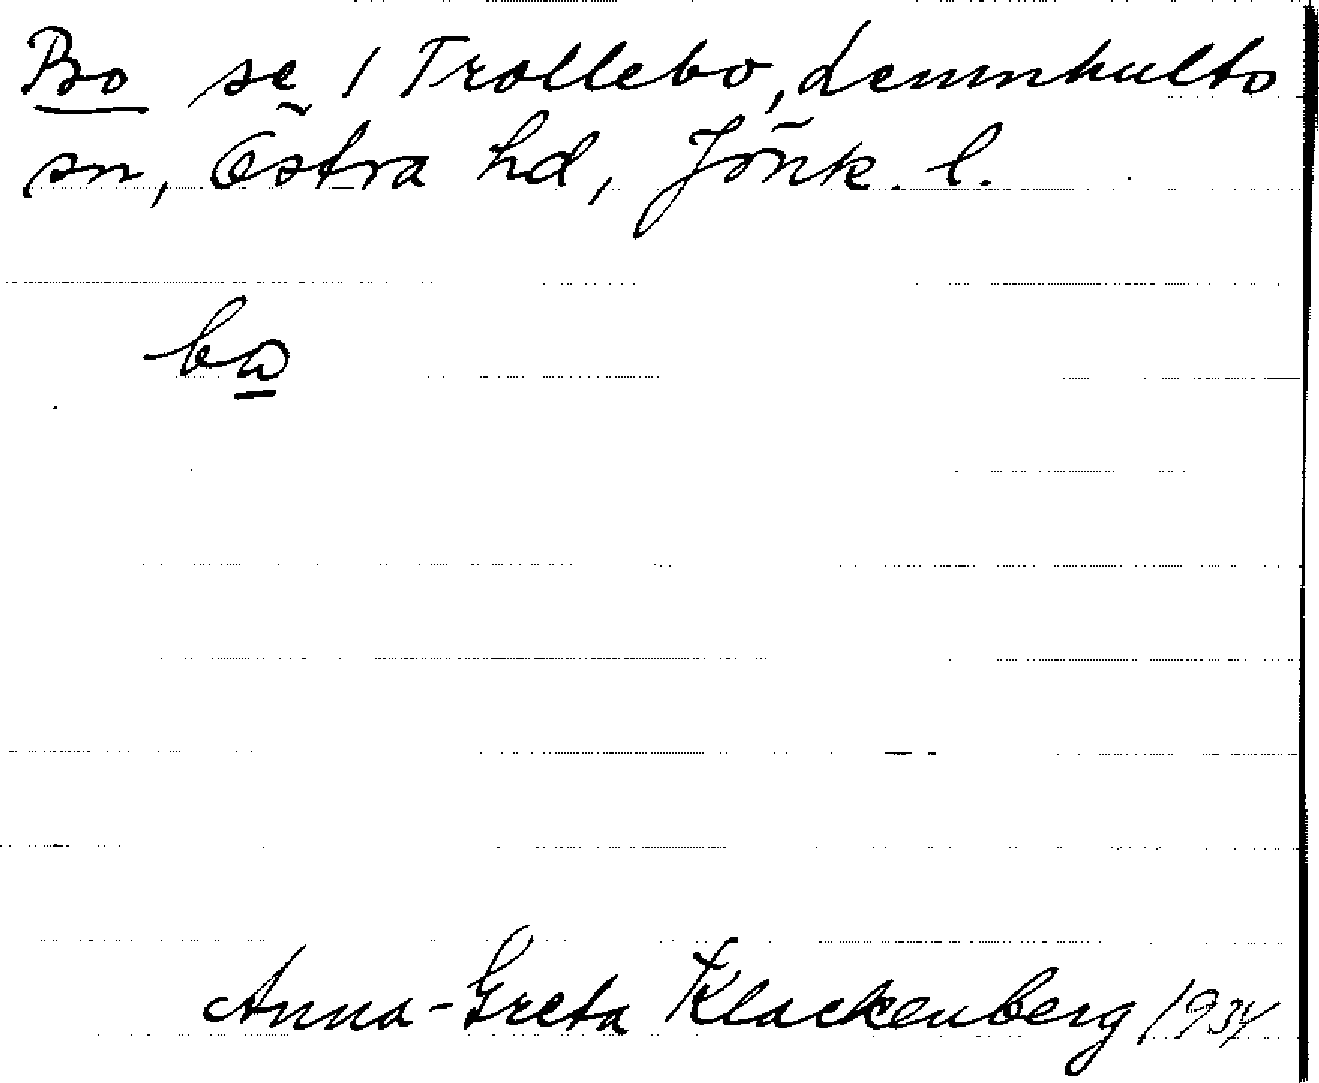 Bo se / Trollebo, Lemnhults
sn, Östra hd, Jönk. l.
bo
Anna-Greta Klackenberg 1934